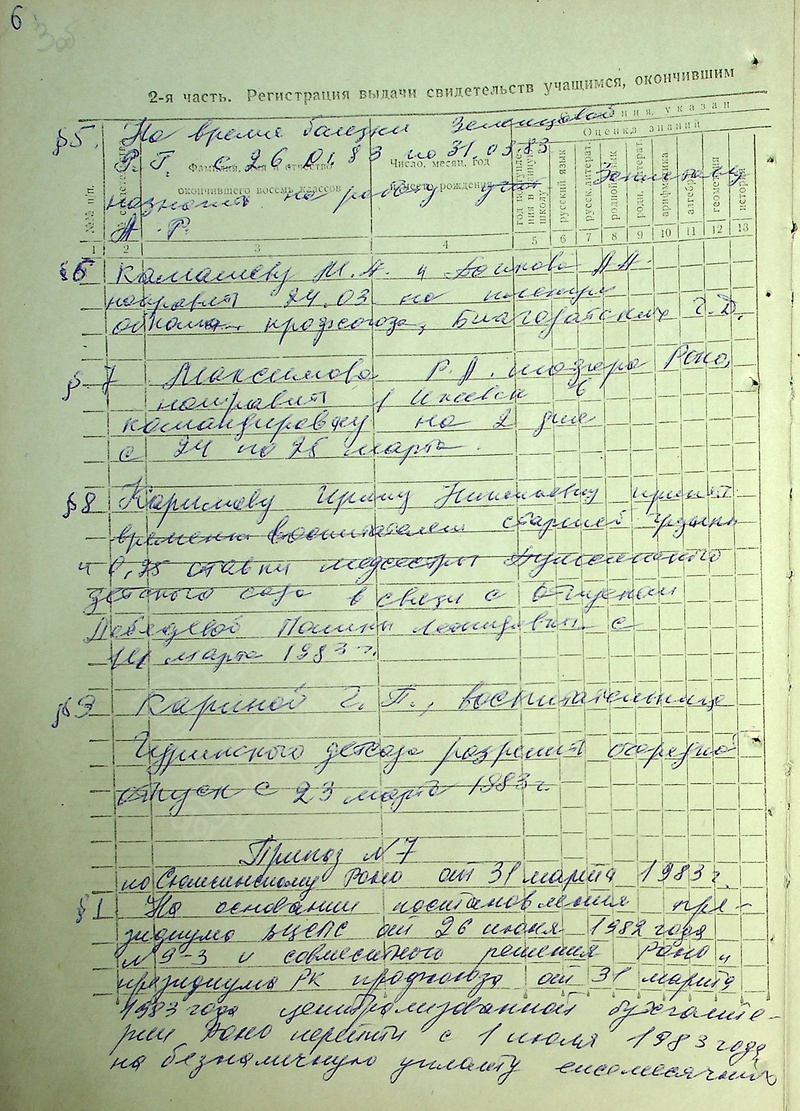 6
2-я часть. Регистрация выдачи свидетельств учащимся, окончившим
§5. На время болезни Зеленцовой
Р. Г. с 26.01.83 по 31.03.83
назначить на работу
А. Р.
Оценка знаний
Число, месяц, год
окончившего восемь классов
русский язык
русск. литерат.
алгебра
геометрия
1 2 3 4 5 6 7 8 9 10 11 12 13
§6 Камашеву М. А. и А.А.
направить 24.03 на пленум
обкома профсоюза, Благодатских Г. Д.
§ 7 Максимова Р. А. шофера Роно,
направить в Ижевск в
командировку на 2 дня
с 24 по 25 марта.
§8 Каримову Ирину принять
временно воспитателем старшей группы
и 0,75 ставки медсестры
детского сада в связи с отпуском
Лебедевой Полины Леонидовны с
марта 1983 г.
§9 Кариной Г. П., воспитательнице
Гуринского детсада разрешить очередной
отпуск с 23 марта 1983 г.
Приказ № 7
по Сюмсинскому Роно от 31 марта 1983 г.
§1 На основании постановления пре-
зидиума ВЦСПС от 26 июня 1982 года
№ 9-3 и совместного решения Роно и
президиума РК профсоюза от 31 марта
1983 года централизованной бухгалте-
рии Роно перейти с 1 июля 1983 года
на безналичную уплату ежемесячных